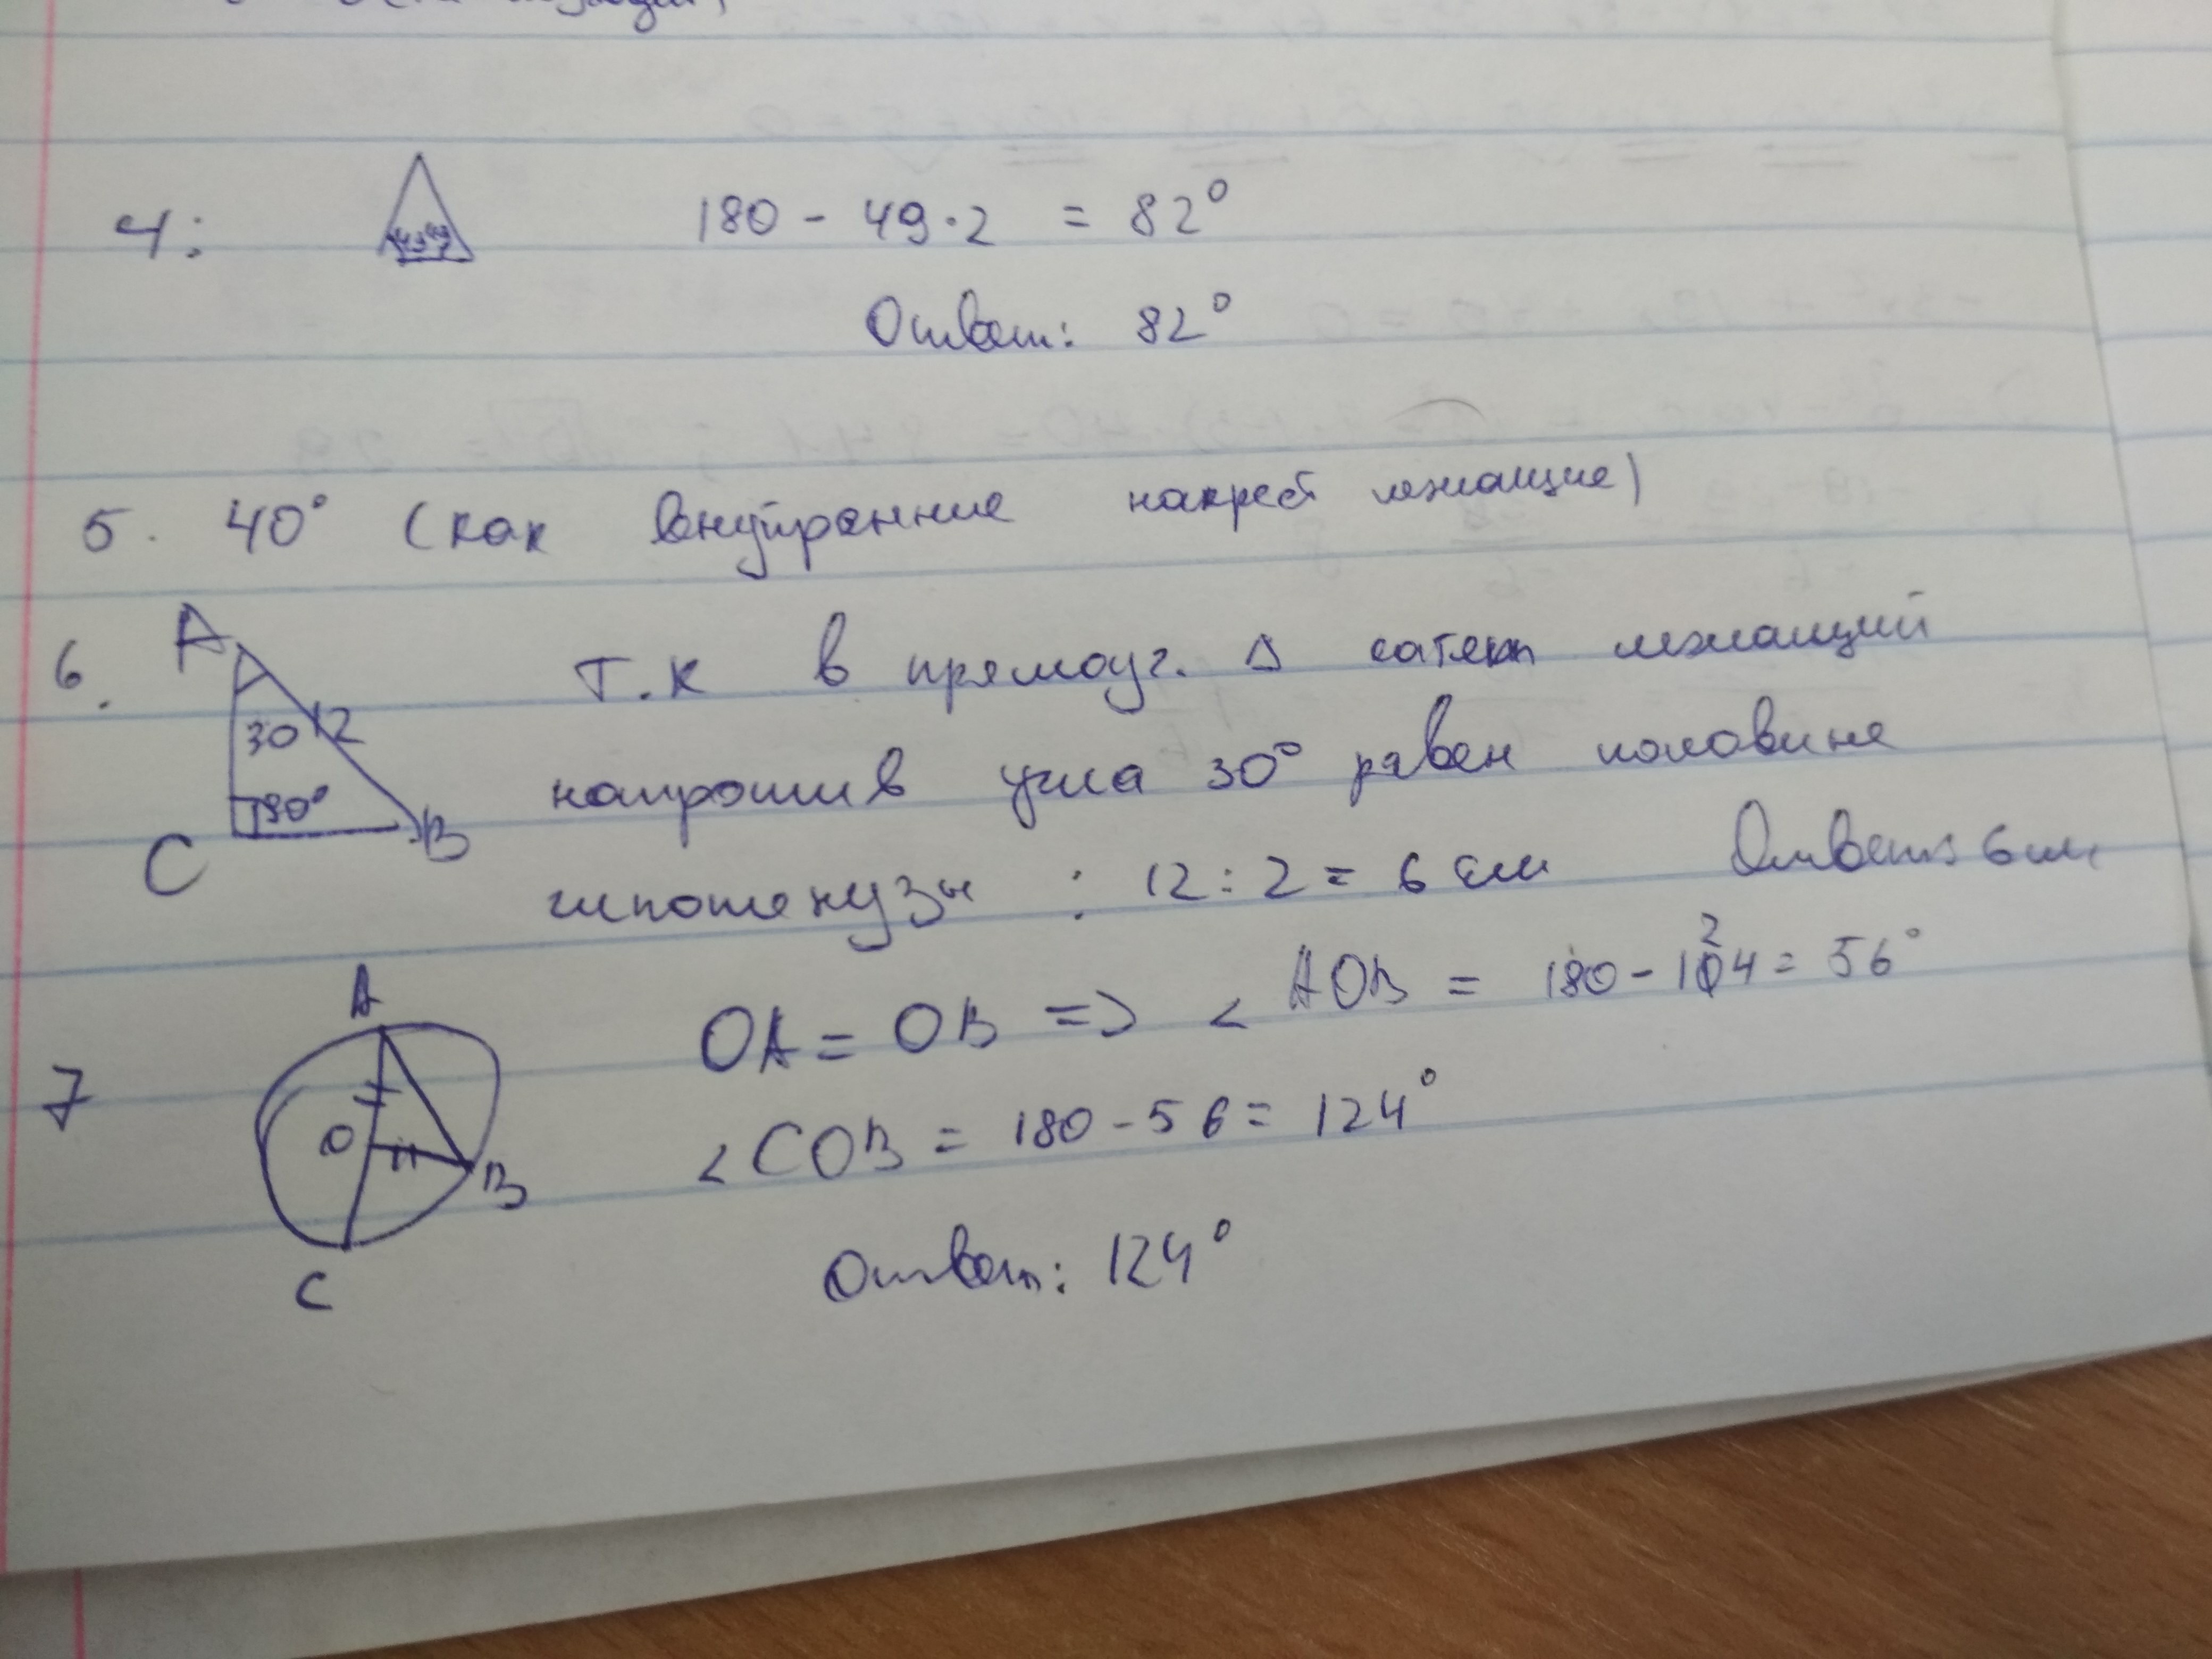 4:
49 49
180 - 49·2 = 82°
Ответ: 82°
5. 40° (как внутренние накрест лежащие)
6.
A
30 12
90°
C B
Т.к в прямоуг. Δ катет лежащий
напротив угла 30° равен половине
гипотенузы : 12:2 = 6 см Ответ: 6 см
7
A
O
B
C
OA = OB => < AOB = 180 - 124 = 56°
< COB = 180 - 56 = 124°
Ответ: 124°